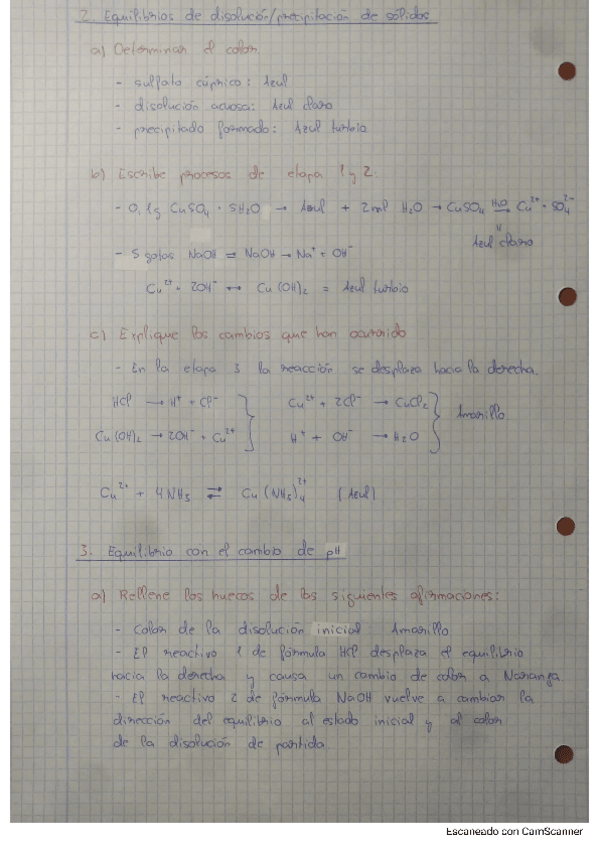 2. Equilibrios de disolución/precipitación de sólidos
a) Determinar el color.
- sulfato cúprico: Azul
- disolución acuosa: Azul claro
- precipitado formado: Azul turbio
b) Escribe procesos de etapa 1 y 2.
- 0,1g CuSO4 · 5H2O → Azul + 2ml H2O → CuSO4 H2O⇌ Cu2+ + SO4 2-
Azul claro
- 5 gotas NaOH ⇌ NaOH → Na+ + OH-
Cu2+ + 2OH- ↔ Cu(OH)2 = Azul turbio
c) Explique los cambios que han ocurrido
- En la etapa 3 la reacción se desplaza hacia la derecha.
HCl → H+ + Cl- Cu2+ + 2Cl- → CuCl2
Amarillo
Cu(OH)2 → 2OH- + Cu2+ H+ + OH- → H2O
Cu2+ + 4NH3 ⇌ Cu(NH3)4 2+ (Azul)
3. Equilibrio con el cambio de pH
a) Rellene los huecos de las siguientes afirmaciones:
- Color de la disolución inicial Amarillo
- El reactivo 1 de fórmula HCl desplaza el equilibrio
hacia la derecha y causa un cambio de color a Naranja
- El reactivo 2 de fórmula NaOH vuelve a cambiar la
dirección del equilibrio al estado inicial y al color
de la disolución de partida
Escaneado con CamScanner